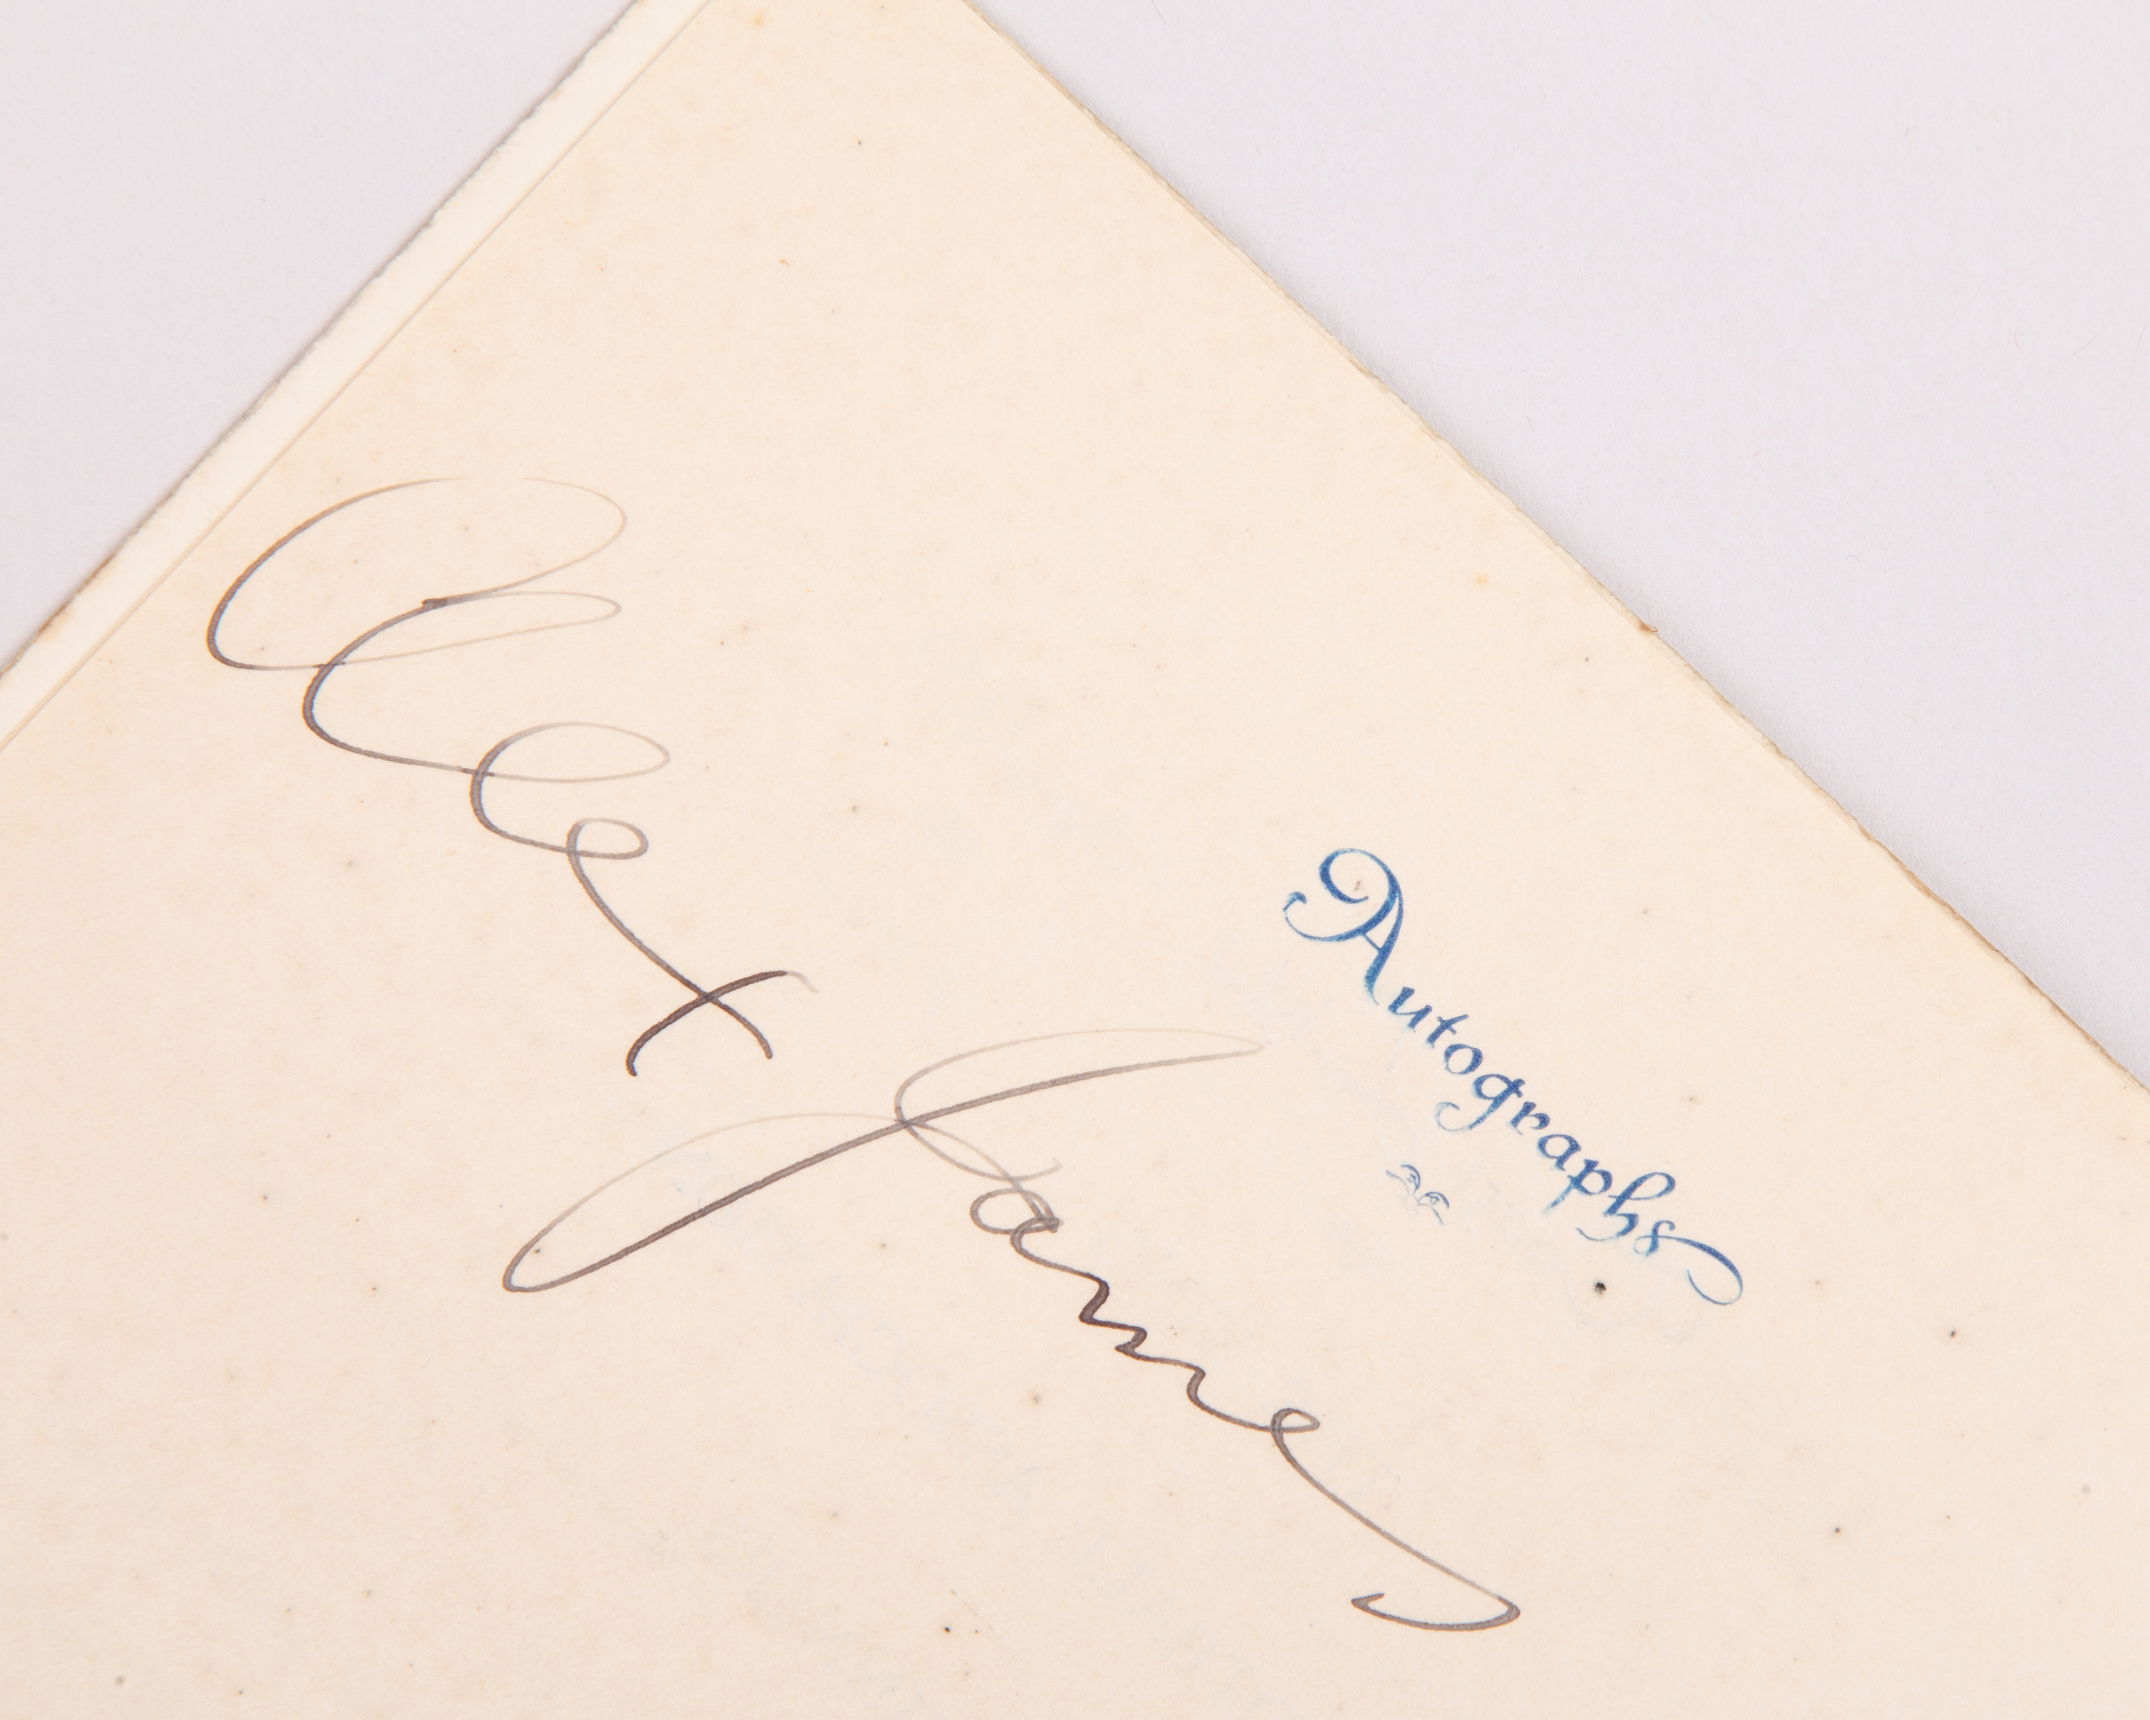 Autographs
Alex James